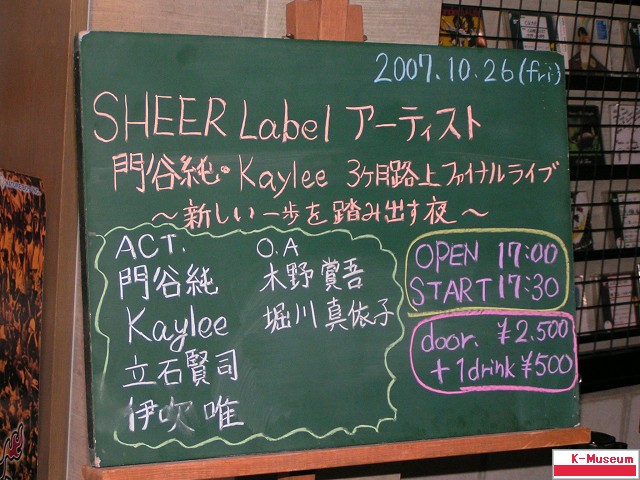 2007.10.26(fri)
SHEER Label アーティスト
門谷純・Kaylee 3ヶ月路上ファイナルライブ
～新しい一歩を踏み出す夜～
ACT.
門谷純
Kaylee
立石賢司
伊吹 唯
O.A
木野賞吾
堀川真依子
OPEN 17:00
START 17:30
door. ¥2,500
+ 1drink ¥500
K-Museum